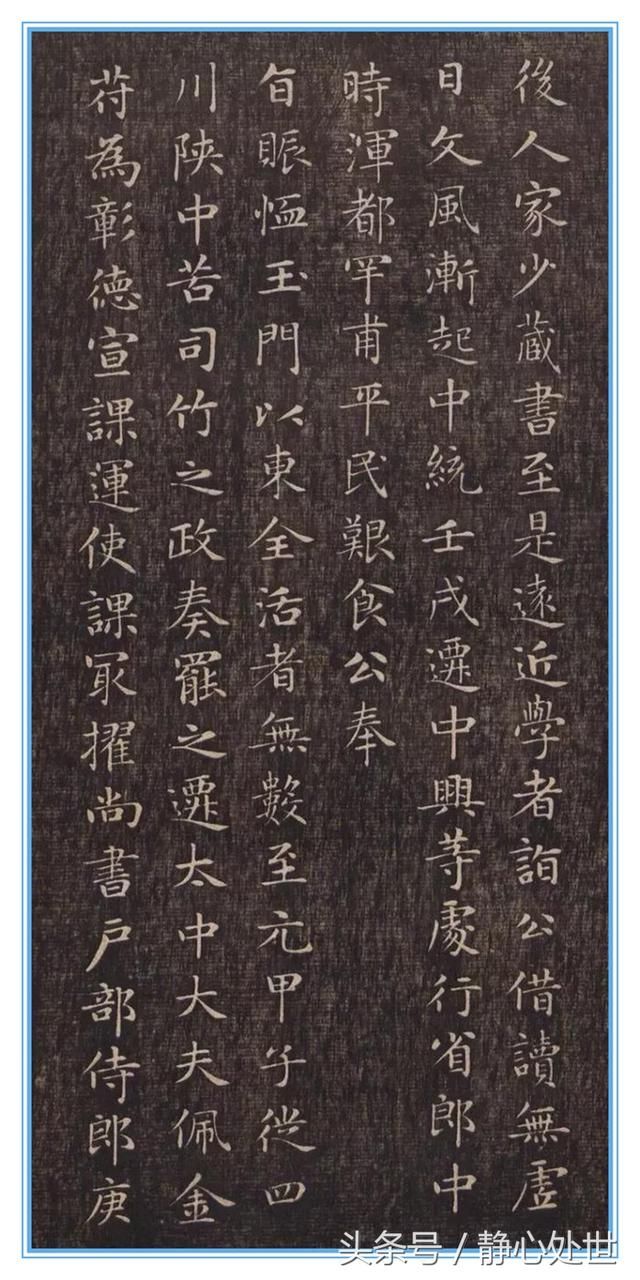 後人家少蔵書至是遠近學者詣公借讀無虗
日文風漸起中統壬戌遷中興等處行省郎中
時渾都罕甫平民艱食公奉
旨賑恤玉門以東全活者無數至元甲子從四
川陝中苦司竹之政奏罷之遷太中大夫佩金
苻為彰德宣課運使課冣擢尚書戶部侍郎庚
头条号 / 静心处世